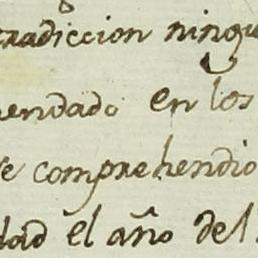 tradiccion ningu
endado en los
e comprehendio
dad el año del